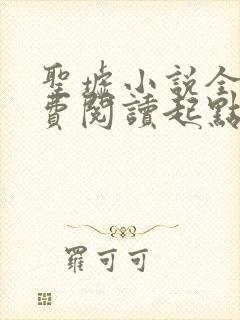 聖墟小說全
費閱讀起點
羅可可